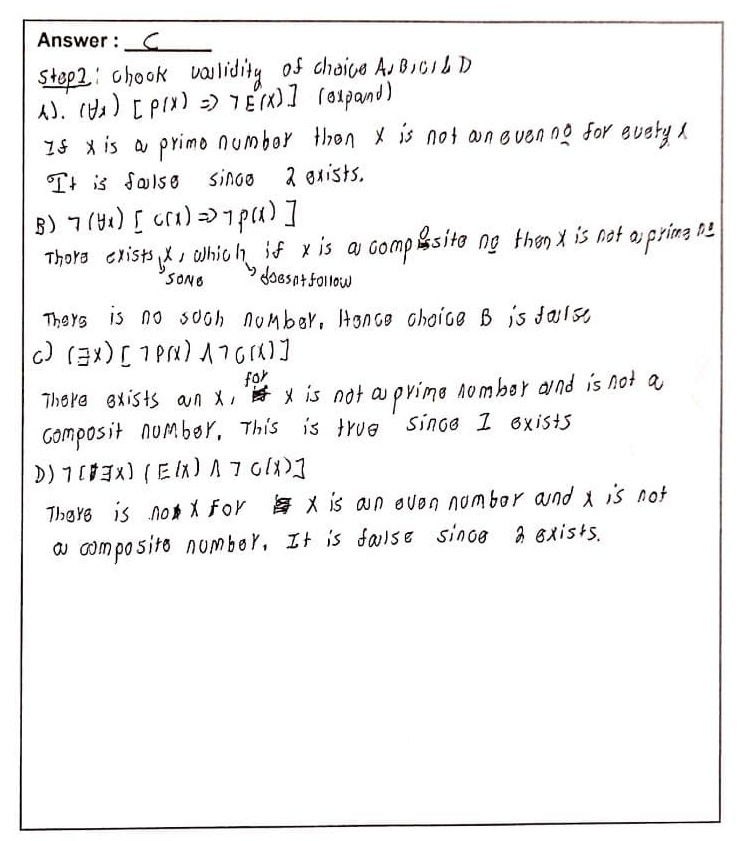 Answer : C
Step1: check validity of choice A, B, C, & D
A). (∀x) [P(x) => ¬E(x)] (expand)
If x is a prime number then x is not an even no for every x
It is false since 2 exists.
B) ¬(∀x) [C(x) => ¬P(x)]
There exists x, which if x is a composite no then x is not a prime no
some doesnt follow
There is no such number. Hence choice B is false
C) (∃x) [¬P(x) ∧ ¬C(x)]
There exists an x, for x is not a prime number and is not a
composit number. This is true since 1 exists
D) ¬(∃x) (E(x) ∧ ¬C(x)]
There is no x for x is an even number and x is not
a composite number. It is false since 2 exists.